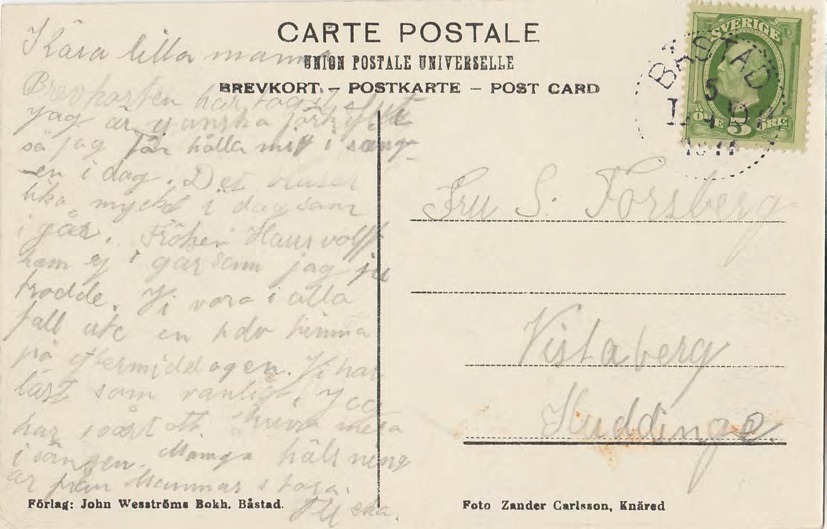 CARTE POSTALE
UNION POSTALE UNIVERSELLE
BREVKORT. – POSTKARTE – POST CARD
SVERIGE
ÖRE 5 ÖRE
BÅSTAD
5
1911
Kära lilla mamma
Brevkorten har tagit slut
jag är ganska förkyld
så jag får hålla mig i säng-
en i dag. Det blåser
lika mycket i dag som
i går. Fröken Hauswolff
kom ej i går som jag ju
trodde. Vi voro i alla
fall ute en halv timma
på eftermiddagen. Vi har
läst som vanligt. Jag
har svårt att skriva
i sängen. Många hälsning
ar från Mammas stora
Fru S. Forsberg
Vistaberg
Huddinge.
Förlag: John Wesströms Bokh. Båstad.
Foto Zander Carlsson, Knäred